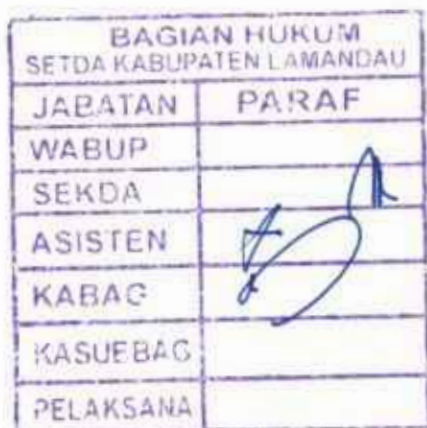 BAGIAN HUKUM
SETDA KABUPATEN LAMANDAU
JABATAN PARAF
WABUP
SEKDA
ASISTEN
KABAG
KASUEBAG
PELAKSANA